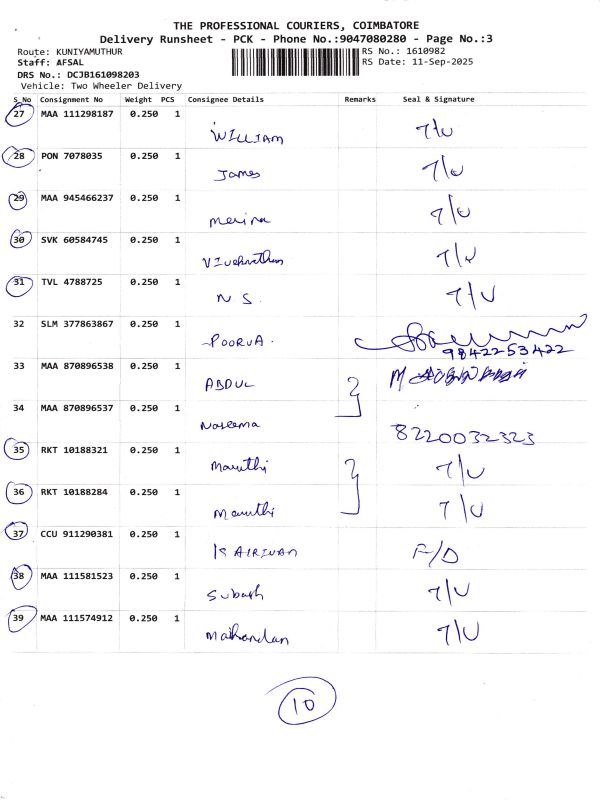 THE PROFESSIONAL COURIERS, COIMBATORE
Delivery Runsheet - PCK - Phone No.:9047080280 - Page No.:3
Route: KUNIYAMUTHUR RS No.: 1610982
Staff: AFSAL RS Date: 11-Sep-2025
DRS No.: DCJB161098203
Vehicle: Two Wheeler Delivery
S_No Consignment No Weight PCS Consignee Details Remarks Seal & Signature
27 MAA 111298187 0.250 1
WILLIAM 7/U
28 PON 7078035 0.250 1
James 7/U
29 MAA 945466237 0.250 1
Merina 7/U
30 SVK 60584745 0.250 1
7/U
31 TVL 4788725 0.250 1
N S. 7/U
32 SLM 377863867 0.250 1
POORVA.
9842253422
33 MAA 870896538 0.250 1
ABDUL
34 MAA 870896537 0.250 1
Naseema 8220032323
35 RKT 10188321 0.250 1
Maruthi 7/U
36 RKT 10188284 0.250 1
Maruthi 7/U
37 CCU 911290381 0.250 1
F/D
38 MAA 111581523 0.250 1
Subash 7/U
39 MAA 111574912 0.250 1
7/U
10